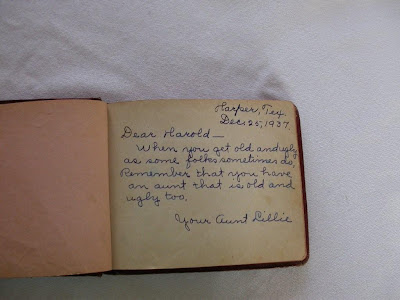 Harper, Tex.
Dec. 25, 1937.
Dear Harold—
When you get old and ugly
as some folks sometimes do,
Remember that you have
an aunt that is old and
ugly too.
Your Aunt Lillie